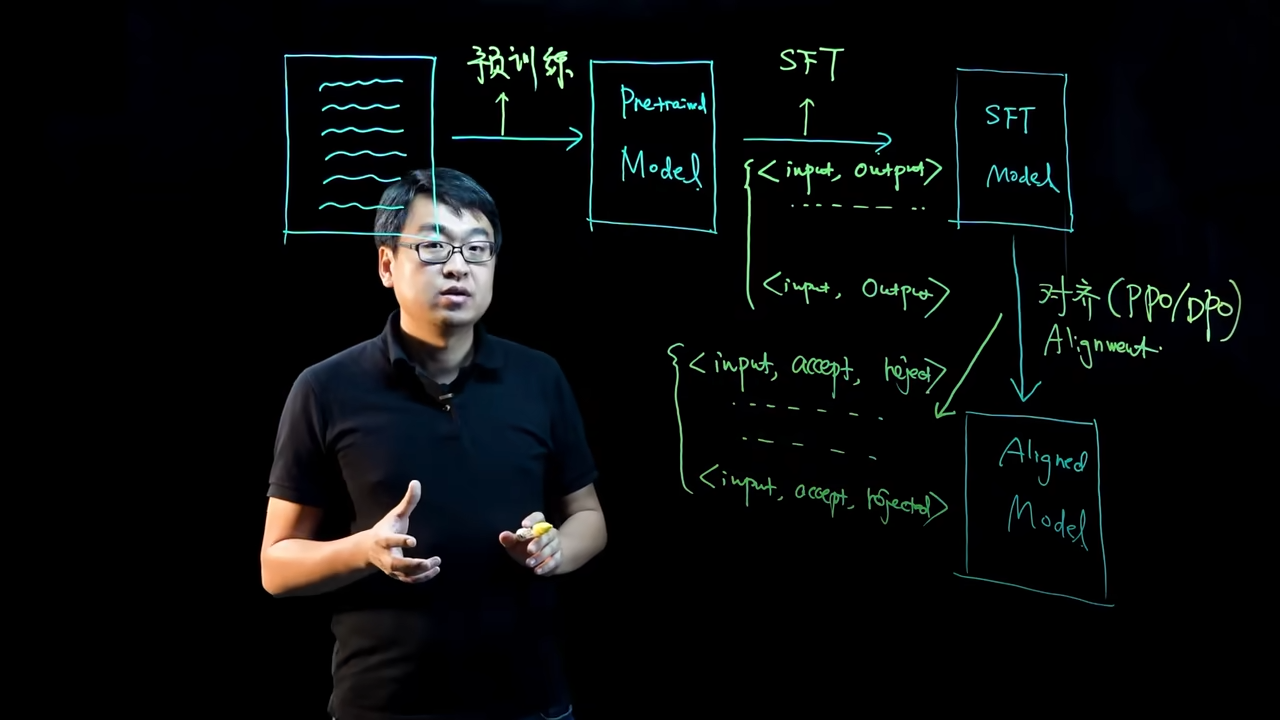 预训练
SFT
Pretrained
Model
SFT
Model
<input, output>
<input, output>
对齐(PPO/DPO)
Alignment.
<input, accept, reject>
<input, accept, rejected>
Aligned
Model